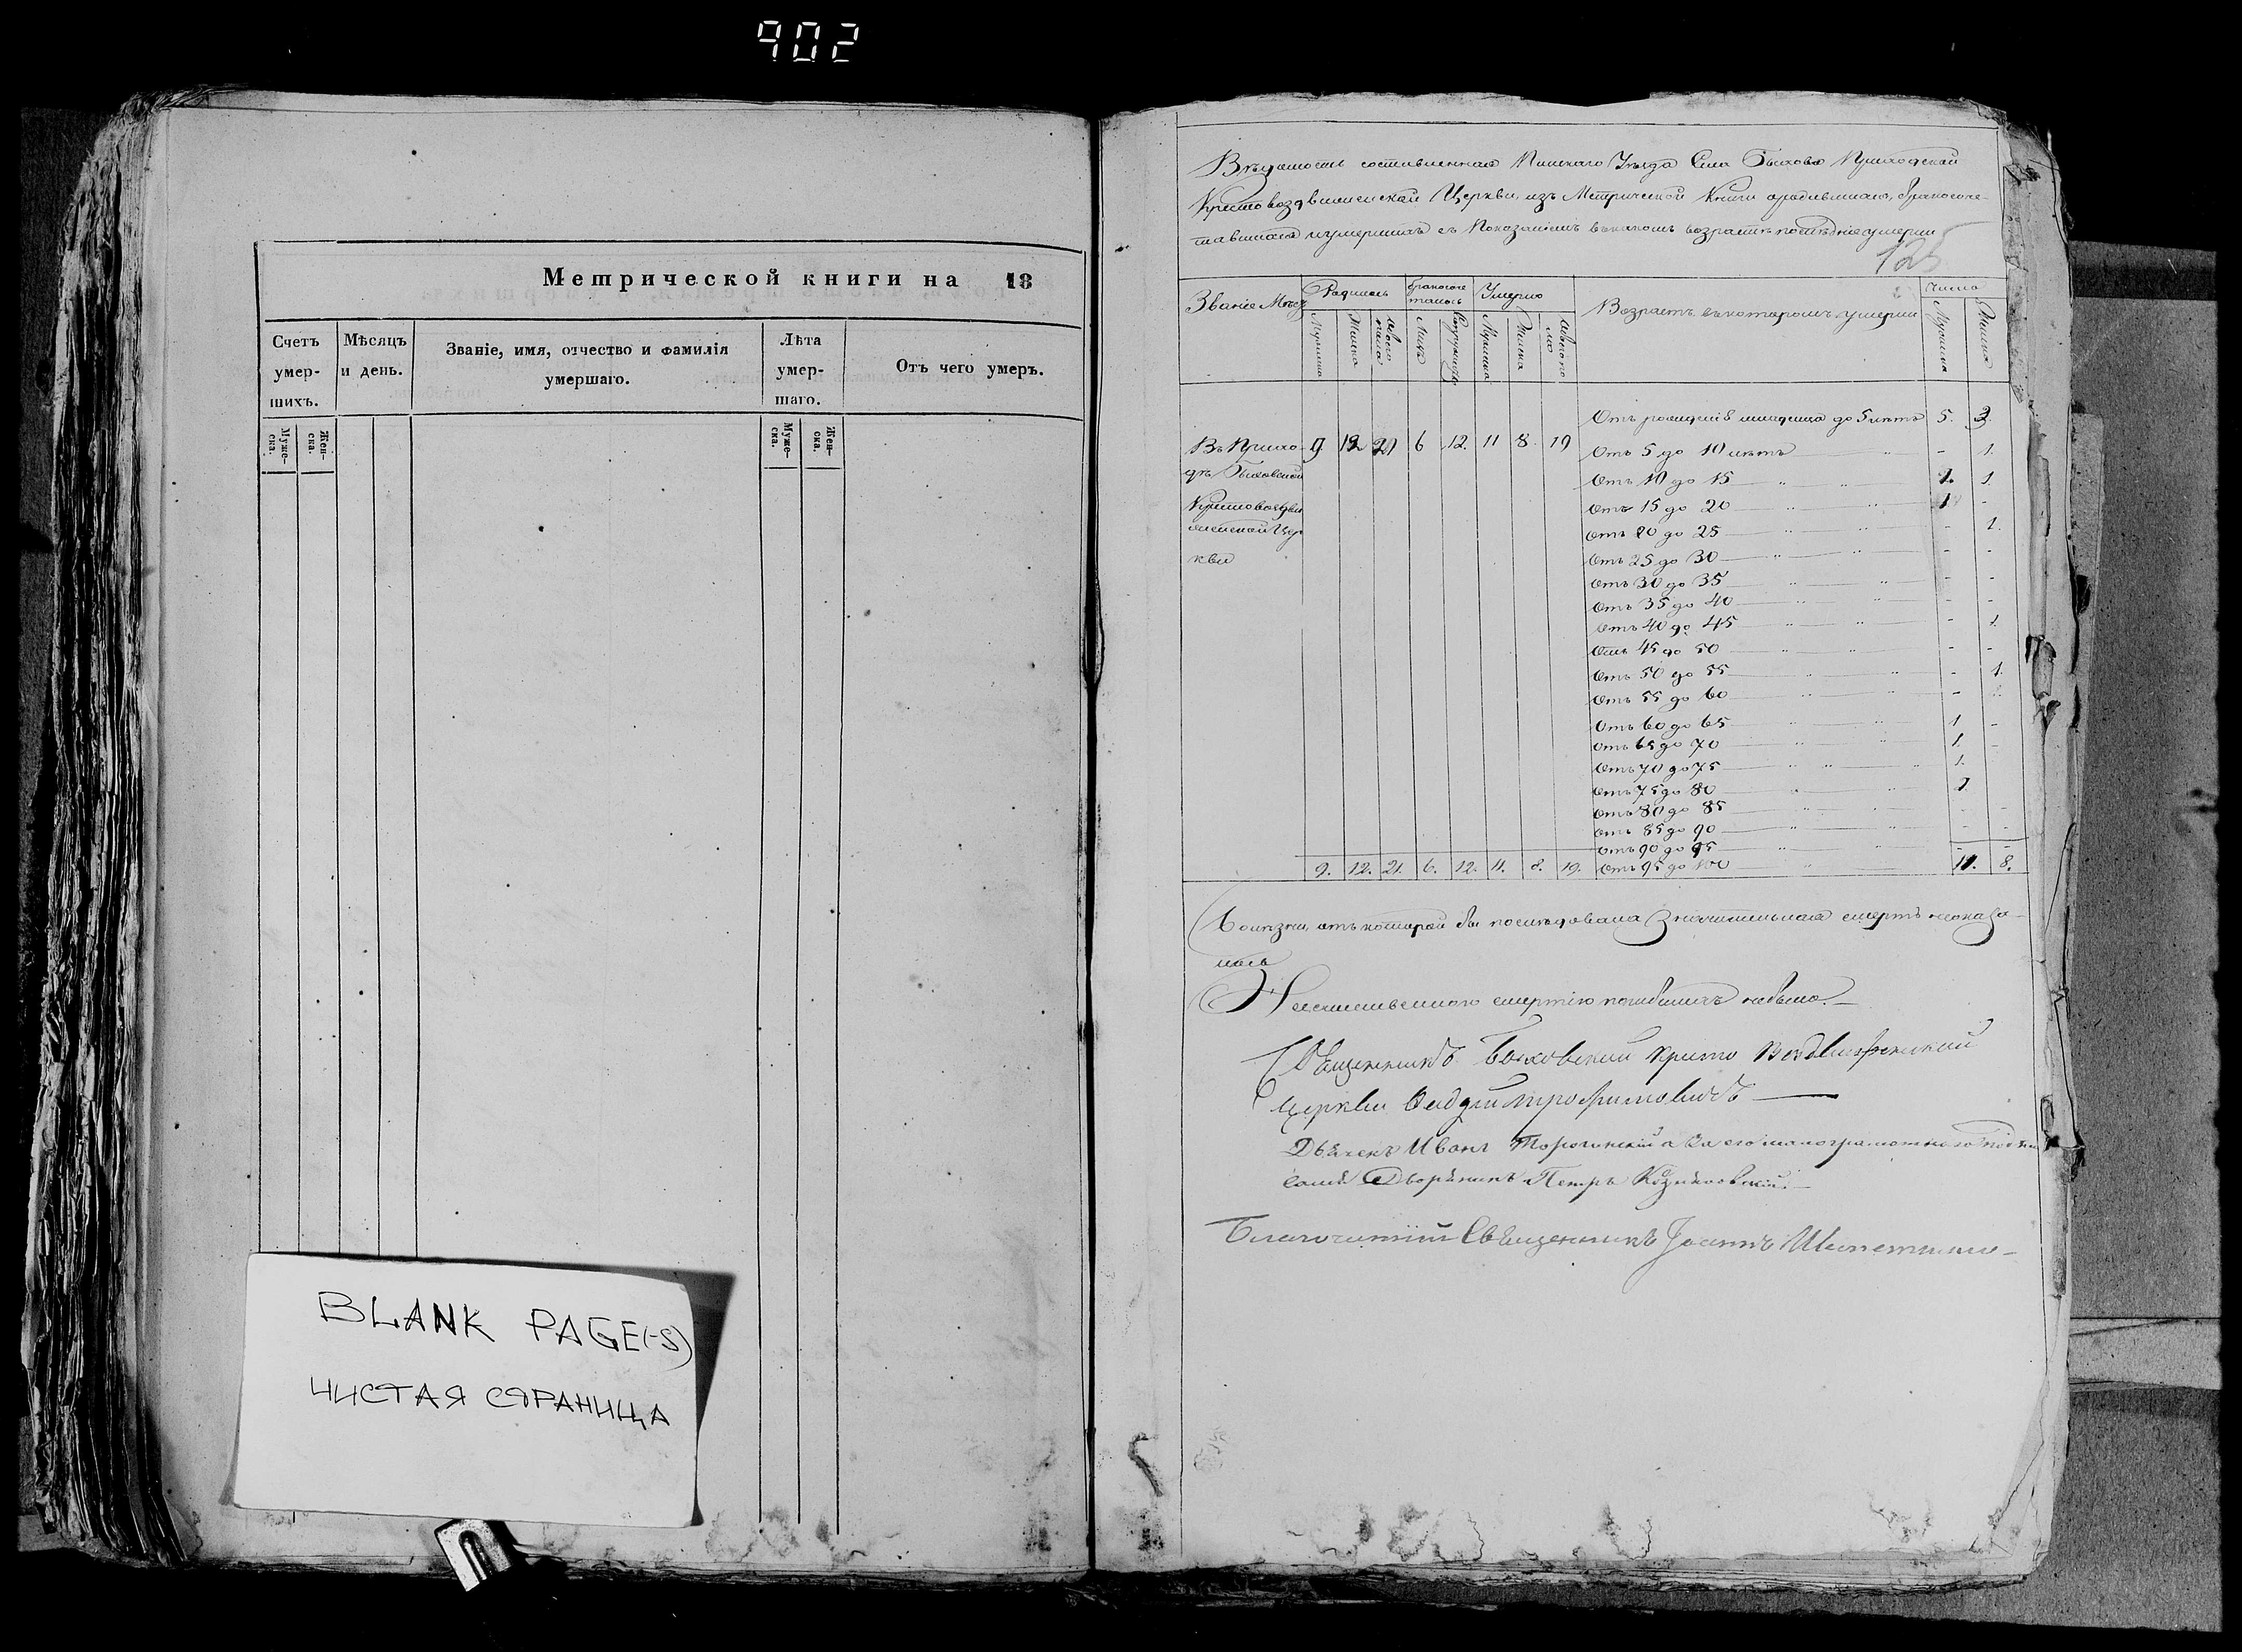 902
Метрической книги на 18
Счетъ умер-шихъ.
Мѣсяцъ и день.
Званіе, имя, отчество и фамилія умершаго.
Лѣта умер-шаго.
Отъ чего умеръ.
Муже-ска.
Жен-ска.
Муже-ска.
Жен-ска.
BLANK PAGE(-S)
ЧИСТАЯ СТРАНИЦА
Вѣдомость составленная Пинскаго Уѣзда Села Быхова Приходской
Кресто воздвиженской Церкви, изъ Метрической Книги о родившихся, бракосоче-
тавшихся и умершихъ съ Показаніемъ въ какомъ возрастѣ послѣдніе умерли
125
Званіе Мѣст
Родилось
бракосоче талось
Умерло
Возрастъ въ которомъ умерли
Число
Мужеска
Женска
Обоего пола
Лицъ
Мужеска
Женска
Обоего по ла
Мужеска
Женска
Отъ рожденія младенца до 5 лѣтъ 5. 3.
Въ Прихо- 9. 12 21 6 12. 11 8. 19
Отъ 5 до 10 лѣтъ - 1.
дѣ Быховской
Отъ 10 до 15 1. 1
Крестовоздви
Отъ 15 до 20 1 -
женской Цер
Отъ 20 до 25 - 1.
кви
Отъ 25 до 30 - -
Отъ 30 до 35 - -
Отъ 35 до 40 - -
Отъ 40 до 45 - 1.
Отъ 45 до 50 - -
Отъ 50 до 55 - 1.
Отъ 55 до 60 -
Отъ 60 до 65 1. -
Отъ 65 до 70 1. -
Отъ 70 до 75 1.
Отъ 75 до 80 1
Отъ 80 до 85 - -
Отъ 85 до 90 - -
Отъ 90 до 95 - -
9. 12. 21. 6. 12. 11. 8. 19. Отъ 95 до 100 11. 8.
Болѣзни, отъ которой бы послѣдовала Значительная смерть неоказа-
лось
Неестественною смертію погибшихъ небыло.
Священникъ Быховской Кресто Воздвиженской
Церкви Трофимовичъ
Дьячекъ Иванъ а за его малограмотнаго
Дворянинъ Петръ
Благочинный Священникъ Іоаннъ